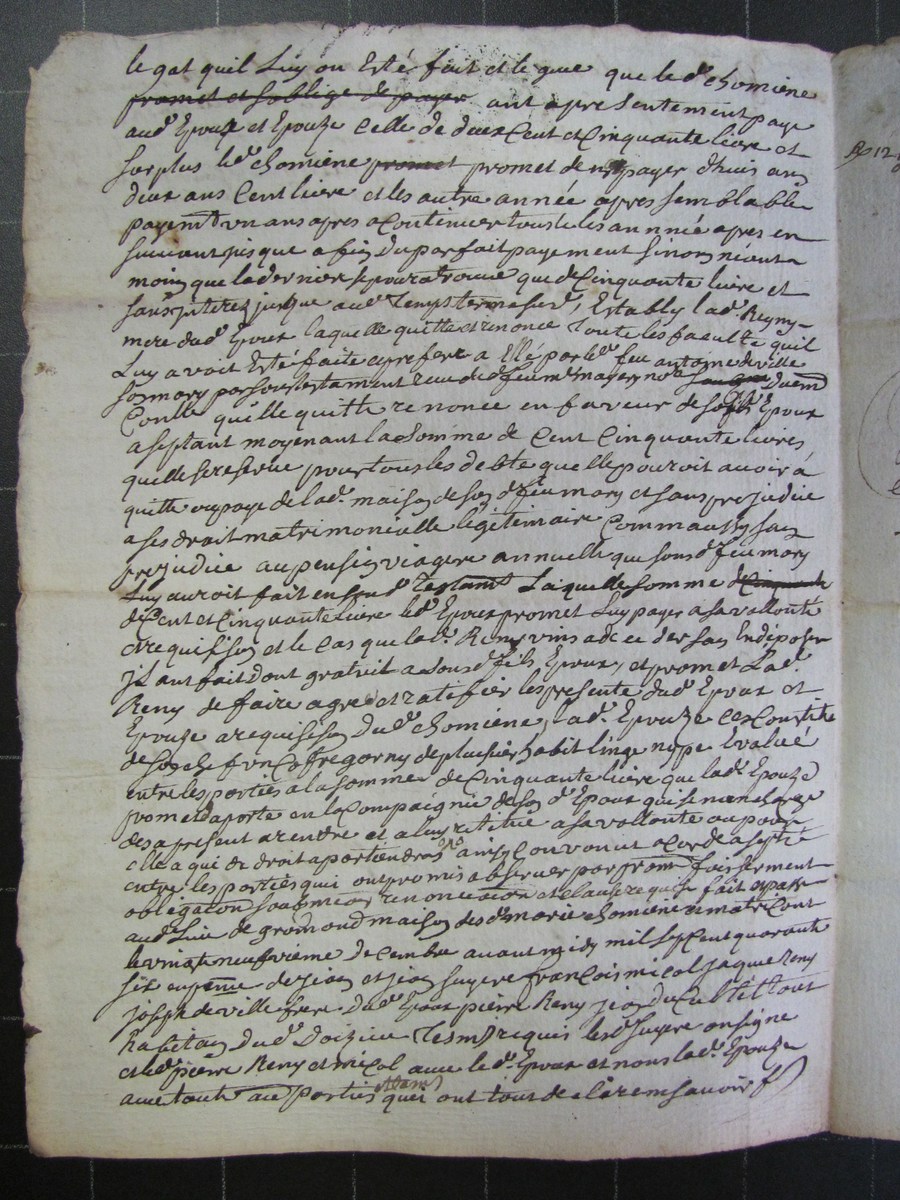 le gat quil Luy on Esté fait et le que que led. chomiene
promet et soblige de payer ont apresentement paye
aud. Epoux et Epouze celle de deux Cent et Cinquante livre et
surplus led. chomiene promet promet de payer dhuis an
deux ans Cent livre et les autre année apres semblable
payemt. un ans apres a Continuer toutes les annnée apres en
suivent jusque a fin du parfait payement sinon néent
moins que la dernier se poura trouve que de Cinquante livre et
sans jnterez jusque aud. Temps Establÿ lad. Reymy
mere dud. Epoux laquelle quitte et renonce Toute les faculté quil
Luy avoit Esté faite a Elle par led. feu antoine deville
son mary par son testament reçu de feu me. mayery nore. du
Conlle quelle quitte renonce en faveur de sod. fils Epoux
aseptant moyenant la somme de Cent Cinquante livres
quelle se reserve pour tous les debte quelle pouroit auoir à
quitte ou paye de lad. maison de son d. feu mary et sans prejudice
a ses droit matrimonialle legitimaire Comm aussy san
prejudice au pension viagere annuelle que son d. feu mary
Luy auroit fait en son d. Testamt. Laquelle somme de Cinquante
de Cent et Cinquante livre led. Epoux promet Luy payer a sa vollonté
et requisison et le cas que lad. Remy vins a deceder san Endisposer
jl ant fait dont gratuit a son d. fils Epoux, et promet Lad.
Remy de faire agreé et ratifier les presente dud. Epoux et
Epouze a requisison dud. chomiene, lad. Epouze ces Constitue
de son chef vn Coffre garny de plusier habit linge nype Evalué
entre les partiés a la somme de Cinquante livre que lad. Epouze
promet daporte en la Compaignie de son d. Epoux qui se men charge
des apresent a rentre et a luy restitué a sa vollonte ou pour
elle a qui de droit apartiendra ainsy Convonut acorde a septé
entre les partiés qui ont promis a observer par foisserment
obligaton soubmison renonciaion et clause requise fait et passe
aud. Lieu de gromond maison des d. marie chomiene et matricont
le vingt neufvieme decembre avant midy mil sept Cent quarante
six en pnce. de jean et jean suyere francois micol jaque Remy
joseph de ville frere dud. Epoux pierre Remy jean du Culté tout
habitan dud. Doizieu Tesm. requis les d. suyere on signe
et led. pierre Remy et micol avec led. Epoux et nous lad. Epouze
avec toute autre Partiés quei ont tout declare ne savoir